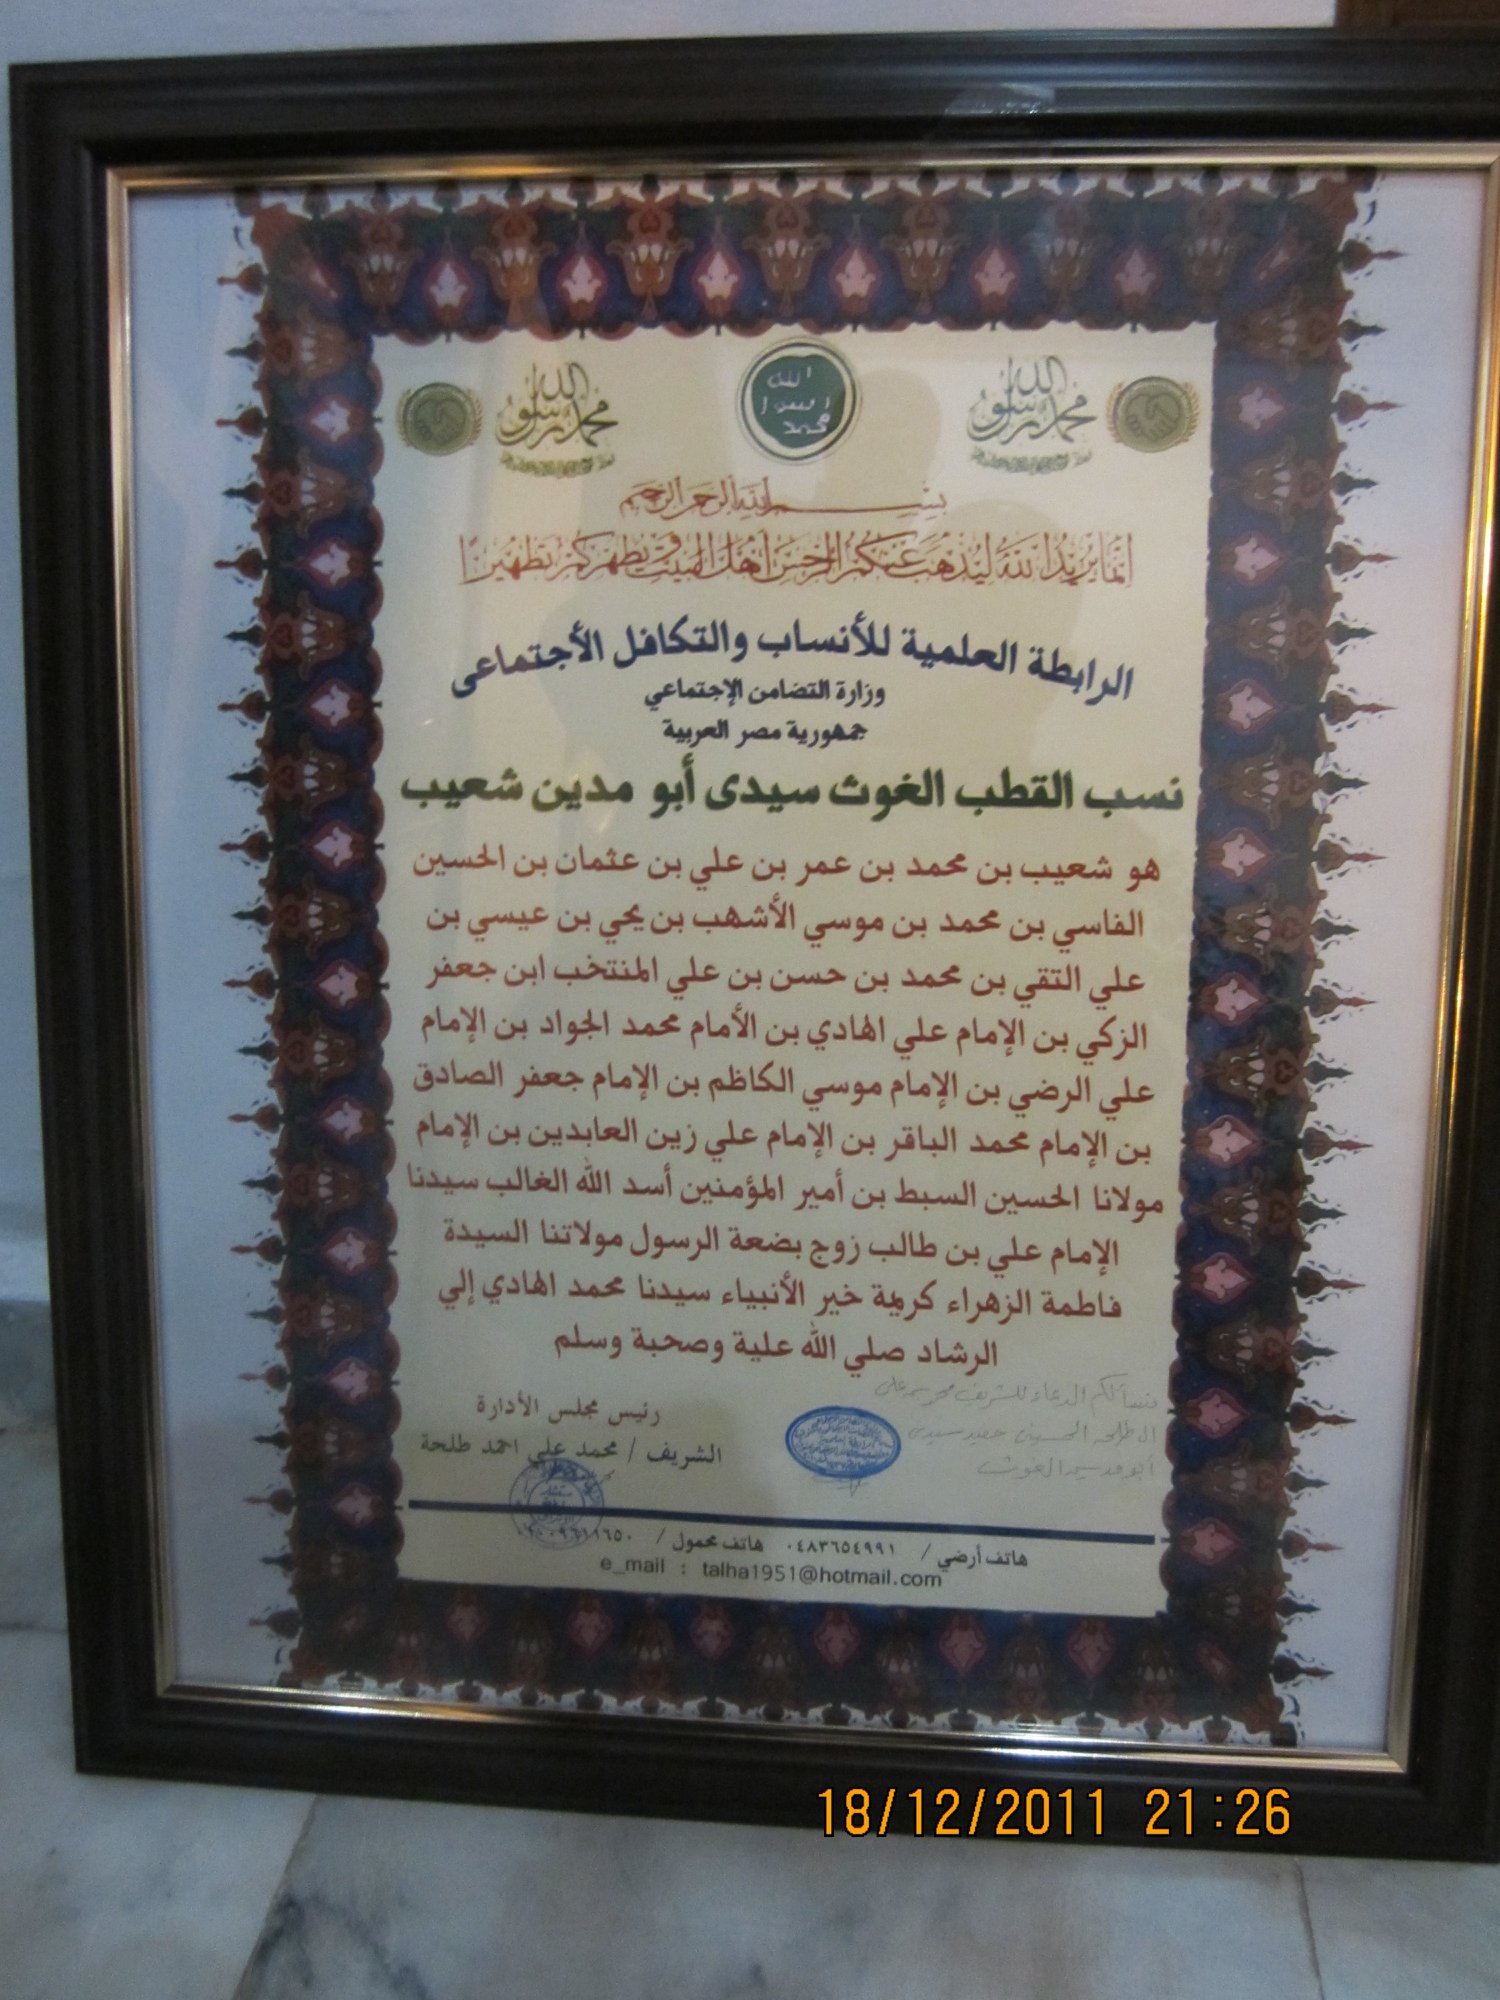 الله
رسول
محمد
محمد رسول الله
محمد رسول الله
بسم الله الرحمن الرحيم
إنما يريد الله ليذهب عنكم الرجس أهل البيت ويطهركم تطهيرا
الرابطة العلمية للأنساب والتكافل الأجتماعى
وزارة التضامن الإجتماعي
جمهورية مصر العربية
نسب القطب الغوث سيدى أبو مدين شعيب
هو شعيب بن محمد بن عمر بن علي بن عثمان بن الحسين
الفاسي بن محمد بن موسي الأشهب بن يحي بن عيسي بن
علي التقي بن محمد بن حسن بن علي المنتخب ابن جعفر
الزكي بن الإمام علي الهادي بن الأمام محمد الجواد بن الإمام
علي الرضي بن الإمام موسي الكاظم بن الإمام جعفر الصادق
بن الإمام محمد الباقر بن الإمام علي زين العابدين بن الإمام
مولانا الحسين السبط بن أمير المؤمنين أسد الله الغالب سيدنا
الإمام علي بن طالب زوج بضعة الرسول مولاتنا السيدة
فاطمة الزهراء كريمة خير الأنبياء سيدنا محمد الهادي إلي
الرشاد صلي الله علية وصحبة وسلم
نسألكم الدعاء للشريف محمد علي
ال طلحه الحسيني حفيد سيدي
أبو مدين الغوث
رئيس مجلس الأدارة
الشريف / محمد علي احمد طلحة
هاتف أرضي / ٠٤٨٣٦٥٤٩٩١ هاتف محمول /
e_mail : talha1951@hotmail.com
18/12/2011 21:26